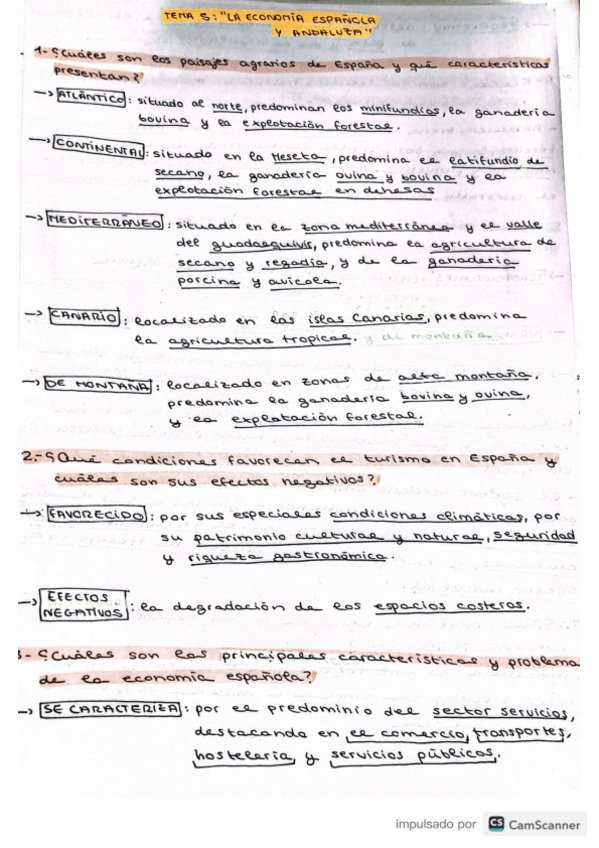 TEMA 5: "LA ECONOMÍA ESPAÑOLA
Y ANDALUZA"
1-¿Cuáles son los paisajes agrarios de España y qué características
presentan?
→ ATLÁNTICO: situado al norte, predominan los minifundios, la ganadería
bovina y la explotación forestal.
→ CONTINENTAL: situado en la Meseta, predomina el latifundio de
secano, la ganadería ovina y bovina y la
explotación forestal en dehesas
→ MEDITERRÁNEO: situado en la zona mediterránea y el valle
del guadalquivir, predomina la agricultura de
secano y regadío, y de la ganadería
porcina y avícola.
→ CANARIO: localizado en las islas Canarias, predomina
la agricultura tropical. y de montaña
→ DE MONTAÑA: localizado en zonas de alta montaña.
predomina la ganadería bovina y ovina,
y la explotación forestal.
2.-¿Qué condiciones favorecen el turismo en España y
cuáles son sus efectos negativos?
→ FAVORECIDO: por sus especiales condiciones climáticas, por
su patrimonio cultural y natural, seguridad
y riqueza gastronómica.
→ EFECTOS
NEGATIVOS: la degradación de los espacios costeros.
3-¿Cuáles son las principales características y problema
de la economía española?
→ SE CARACTERIZA: por el predominio del sector servicios,
destacando en el comercio, transportes,
hostelería, y servicios públicos.
impulsado por CS CamScanner